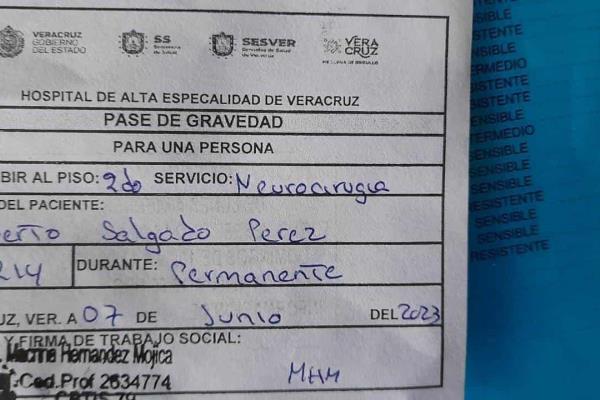 VERACRUZ
GOBIERNO
DEL ESTADO
SS
Secretaría
de Salud
SESVER
Servicios de Salud
de Veracruz
VERA
CRUZ
ME LLENA DE ORGULLO
HOSPITAL DE ALTA ESPECALIDAD DE VERACRUZ
PASE DE GRAVEDAD
PARA UNA PERSONA
BIR AL PISO: 2do SERVICIO: Neurocirugia
DEL PACIENTE:
berto Salgado Perez
214 DURANTE: Permanente
UZ, VER. A 07 DE Junio DEL 2023
Y FIRMA DE TRABAJO SOCIAL:
Hernandez Mojica
Ced.Prof 2634774
MHM
SENSIBLE
ISTENTE
NSIBLE
ERMEDIO
SISTENTE
ENSIBLE
ERMEDIO
ENSIBLE
ENSIBLE
SENSIBLE
SENSIBLE
SENSIBLE
RESISTENTE